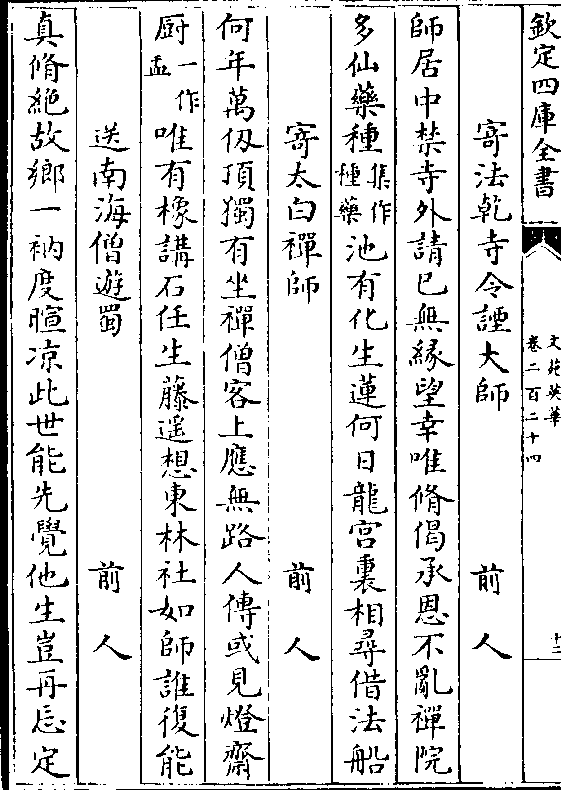 欽定四庫全書
文苑英華
卷二百二十四
十二
寄法乾寺令諲大師
前人
師居中禁寺外請已無縁望幸唯脩偈承恩不亂禪院
多仙藥種集作種藥池有化生蓮何日龍宫裏相尋借法船
寄太白禪師
前人
何年萬仭頂獨有坐禪僧客上應無路人傳或見燈齋
厨一作盂唯有橡講石任生藤遥想東林社如師誰復能
送南海僧遊蜀
前人
真脩絶故鄉一衲度暄凉此世能先覺他生豈再忘定